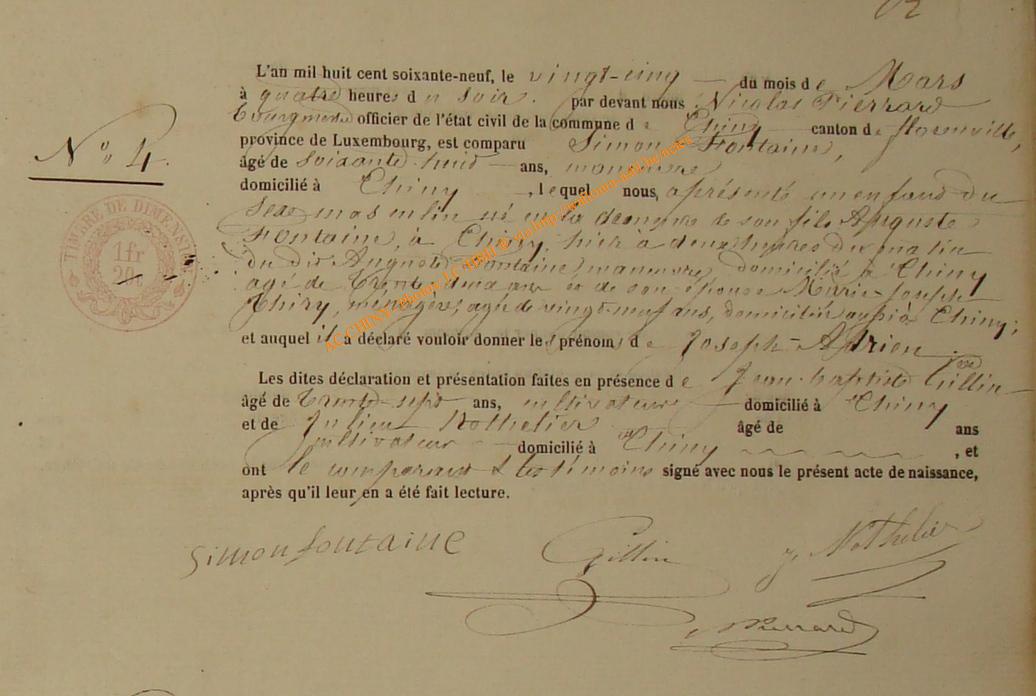 L'an mil huit cent soixante-neuf, le vingt-cinq du mois de Mars
à quatre heures du soir. par devant nous Nicolas Pierrard
Bourgmestre officier de l'état civil de la commune de Chiny canton de Florenville,
province de Luxembourg, est comparu Simon Fontaine,
N° 4.
âgé de soixante huit ans, manœuvre
domicilié à Chiny, lequel nous a présenté un enfant du
sexe masculin né en la demeure de son fils Auguste
Fontaine, à Chiny, hier à deux heures du matin
du dit Auguste Fontaine, manœuvre, domicilié à Chiny
agé de trente deux ans et de son épouse Marie-Joseph
Thiry, ménagère, agée de vingt-neuf ans, domiciliée aussi à Chiny;
et auquel il a déclaré vouloir donner les prénoms de Joseph-Adrien.
Les dites déclaration et présentation faites en présence de Jean-baptiste Gillin
âgé de trente-sept ans, cultivateur domicilié à Chiny
et de Julien Nothelier âgé de ans
cultivateur domicilié à Chiny, et
ont le comparant & les témoins signé avec nous le présent acte de naissance,
après qu'il leur en a été fait lecture.
Simon fontaine Gillin J. Nothelier
Pierrard
TIMBRE DE DIMENSION
1fr
20c